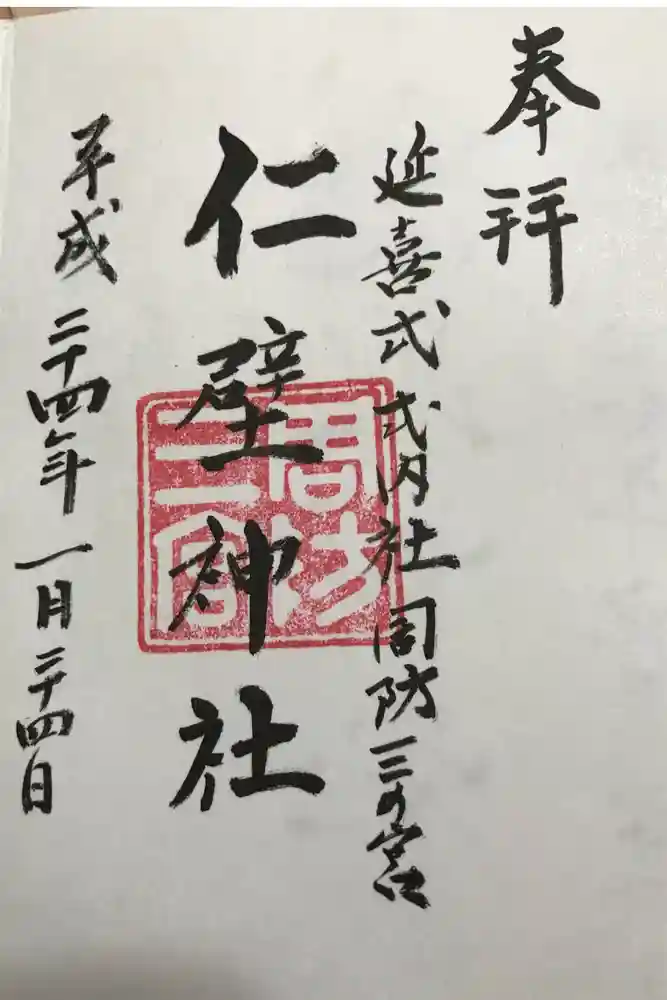 奉拝
延喜式 式内社 周防三の宮
仁壁神社
周防
三宮
平成二十四年一月二十四日